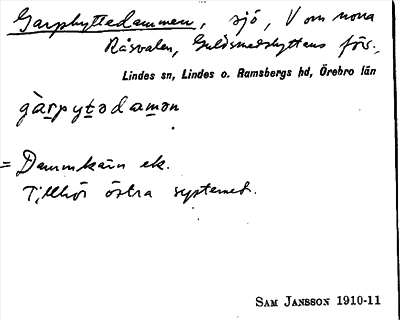 Garphyttedammen, sjö, V om norra
Råsvalen, Guldsmedshyttans förs.,
Lindes sn, Lindes o. Ramsbergs hd, Örebro län
gàrpytədamən
= Dammkärn ek.
Tillhör östra systemet.
SAM JANSSON 1910-11